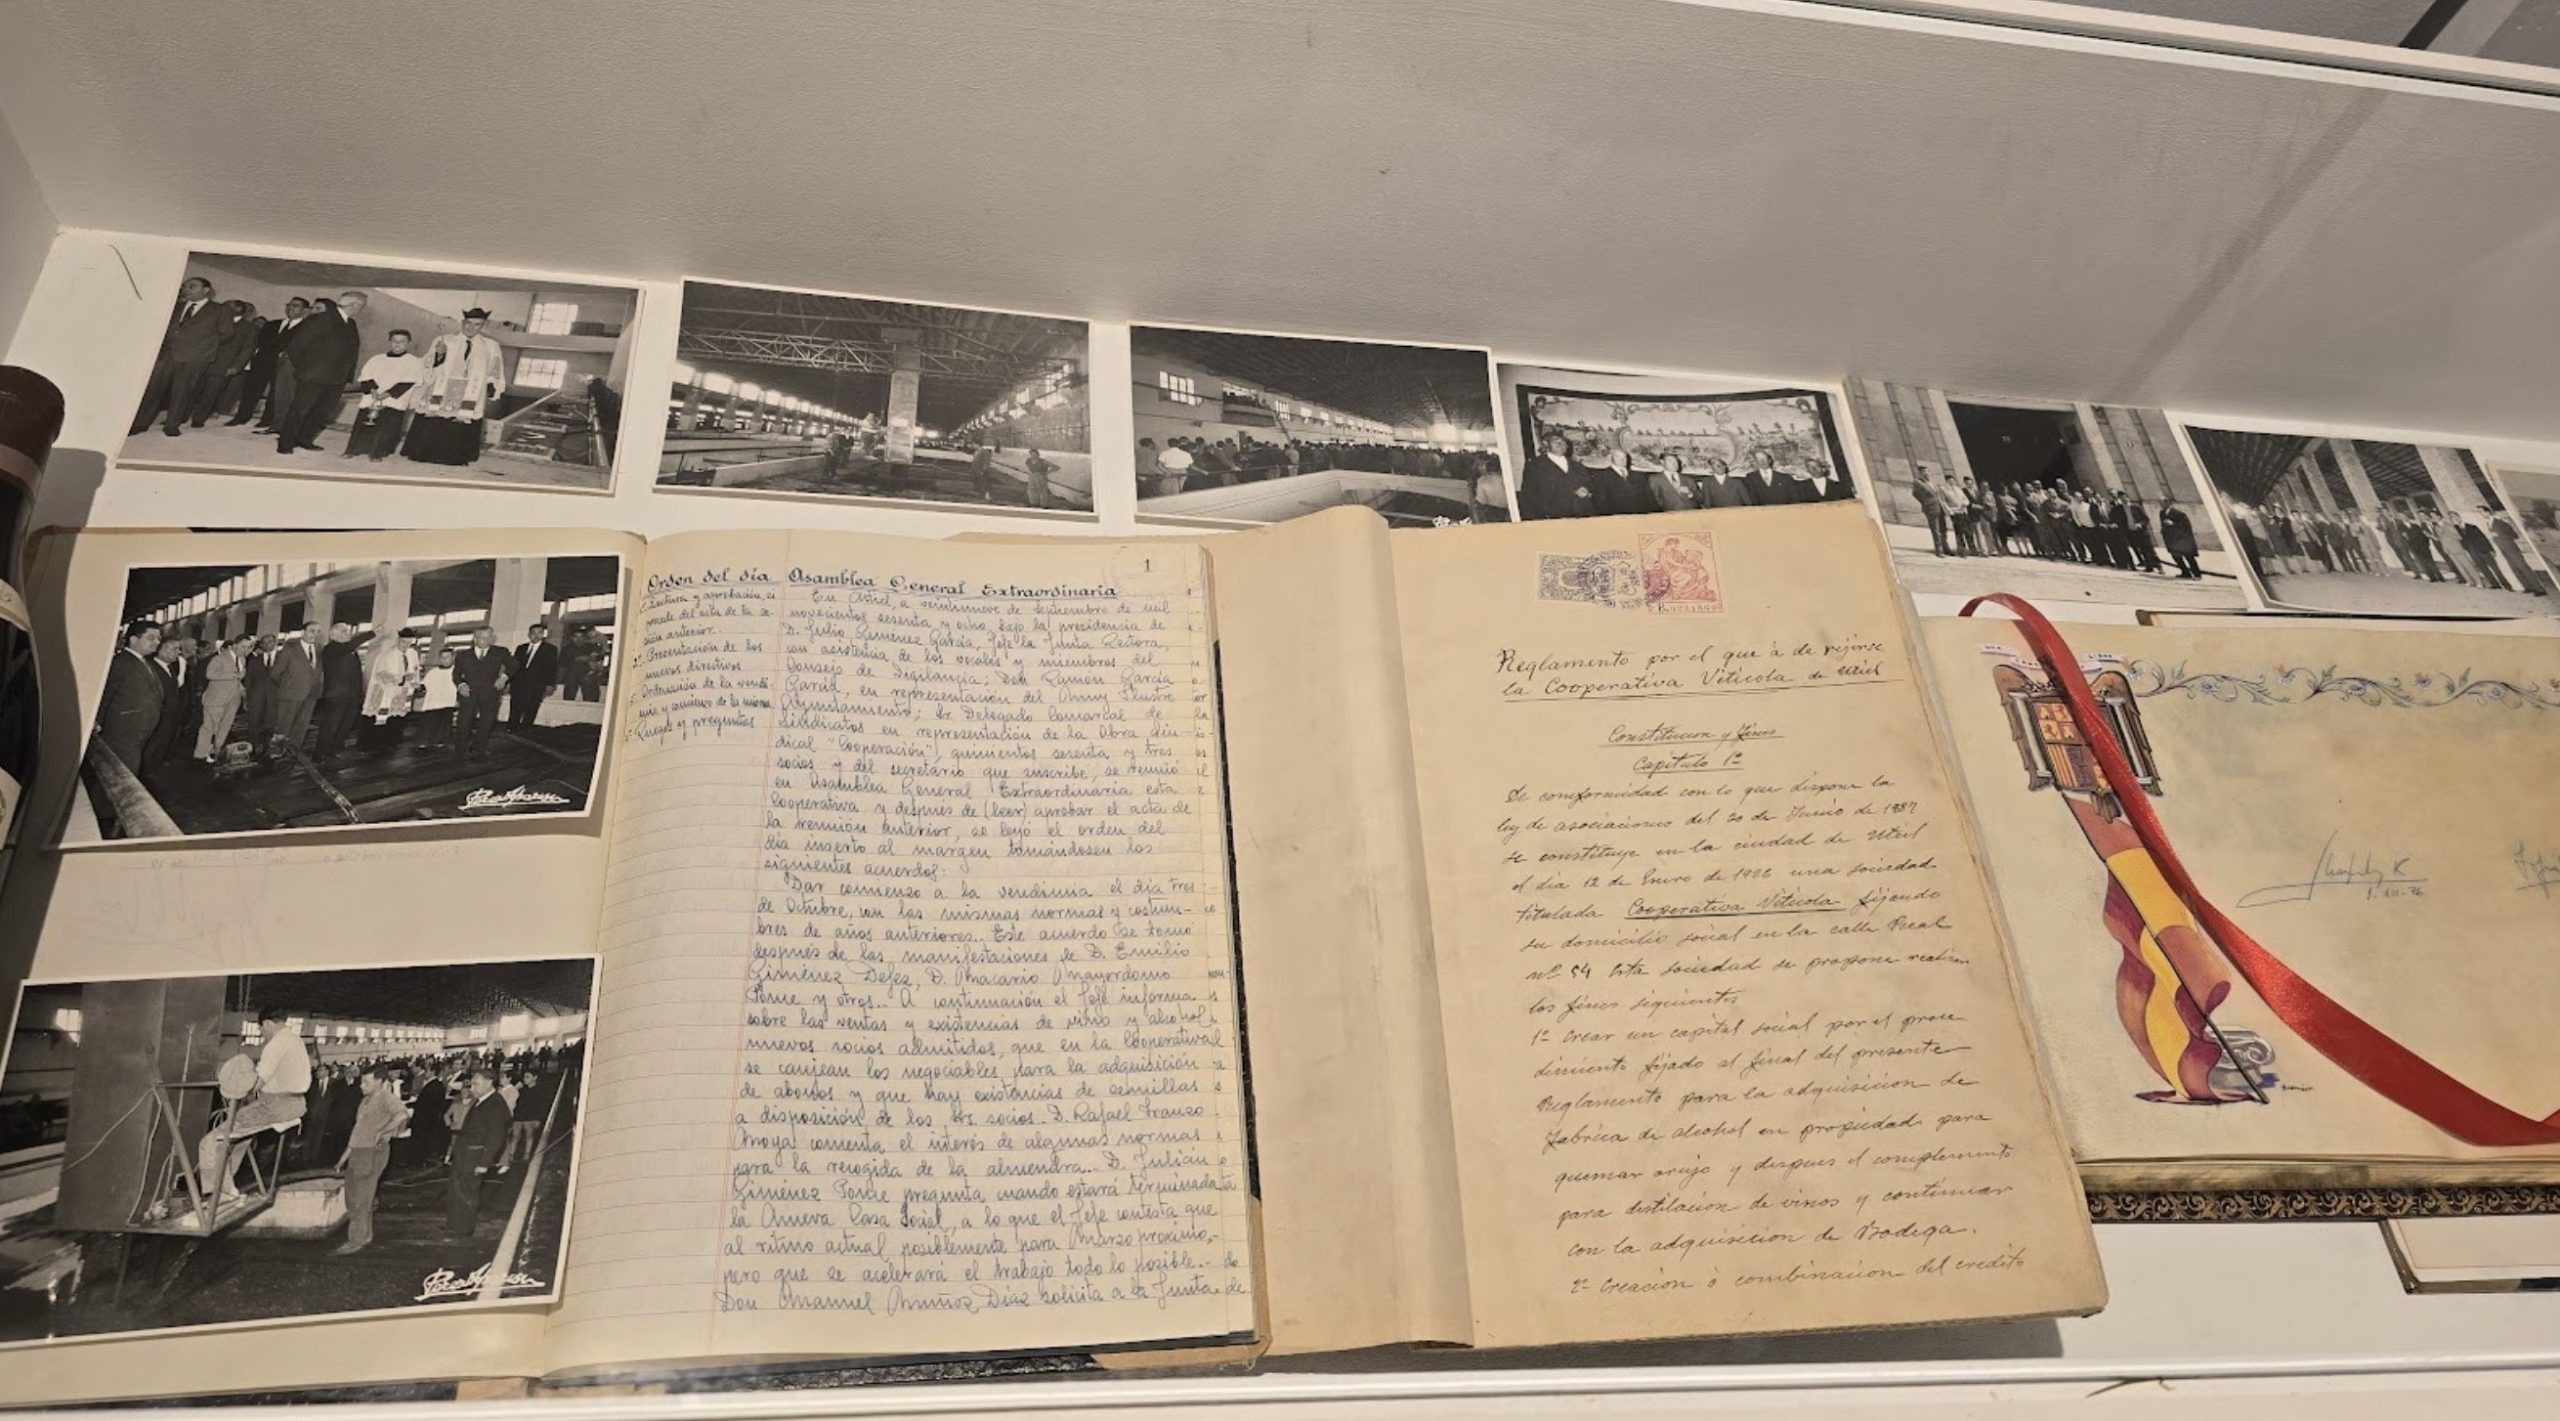 Orden del día
1º Lectura y aprobación, si
procede del acta de la se-
sión anterior.
2º Presentación de los
nuevos directivos
3º Ordenación de la vendi-
mia y comienzo de la misma
Ruegos y preguntas
1
Asamblea General Extraordinaria
En Utiel, a veintinueve de Septiembre de mil
novecientos sesenta y ocho, bajo la presidencia de
D. Julio Giménez García, Jefe la Junta Rectora,
con asistencia de los vocales y miembros del
Consejo de Vigilancia; Don Ramón García
García, en representación del Muy Ilustre
Ayuntamiento; Sr. Delegado Comarcal de
Sindicatos en representación de la Obra Sin-
dical "Cooperación", quinientos sesenta y tres
socios y del secretario que suscribe, se reunió
en Asamblea General Extraordinaria esta
Cooperativa y después de (leer) aprobar el acta de
la reunión anterior, se leyó el orden del
día inserto al margen tomándose los
siguientes acuerdos:
Dar comienzo a la vendimia el día tres
de Octubre, con las mismas normas y costum-
bres de años anteriores.. Este acuerdo se tomó
después de las manifestaciones de D. Emilio
Giménez Defez, D. Macario Mayordomo
Ponce y otros.. A continuación el Jefe informa
sobre las ventas y existencias de vino y alcohol
nuevos socios admitidos, que en la Cooperativa
se canjean los negociables para la adquisición
de abonos y que hay existencias de semillas
a disposición de los Srs. socios. D. Rafael
Moya comenta el interés de algunas normas
para la recogida de la almendra.. D. Julián
Giménez Ponce pregunta cuando estará terminada
la Nueva Casa Social, a lo que el Jefe contesta que
al ritmo actual, posiblemente para Marzo próximo,
pero que se acelerará el trabajo todo lo posible..
Don Manuel Muñoz Díaz solicita a la Junta de
Reglamento por el que á de rejirse
la Cooperativa Viticola de Utiel
Constitucion y fines
Capitulo 1º
De comformidad con lo que dispone la
ley de asociaciones del 30 de Junio de 1887
se constituye en la ciudad de Utiel
el dia 12 de Enero de 1926 una sociedad
titulada Cooperativa Viticola fijando
su domicilio social en la calle Real
nº 54 Esta sociedad se propone realizar
los fines siguientes
1º Crear un capital social por el proce
dimiento fijado al final del presente
Reglamento para la adquisicion de
fabrica de alcohol en propiedad para
quemar orujo y despues el complemento
para destilacion de vinos y continuar
con la adquisicion de Bodega.
2º Creacion ó combinacion del credito